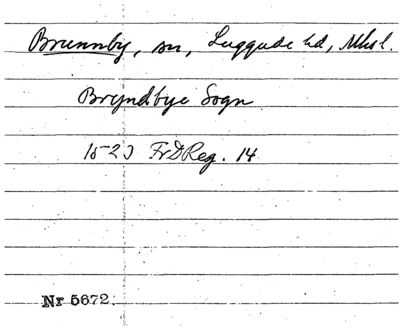 Brunnby, sn, Luggude hd, Mhsl.
Bryndbye Sogn
1523 FrDReg. 14
Nr 5672.